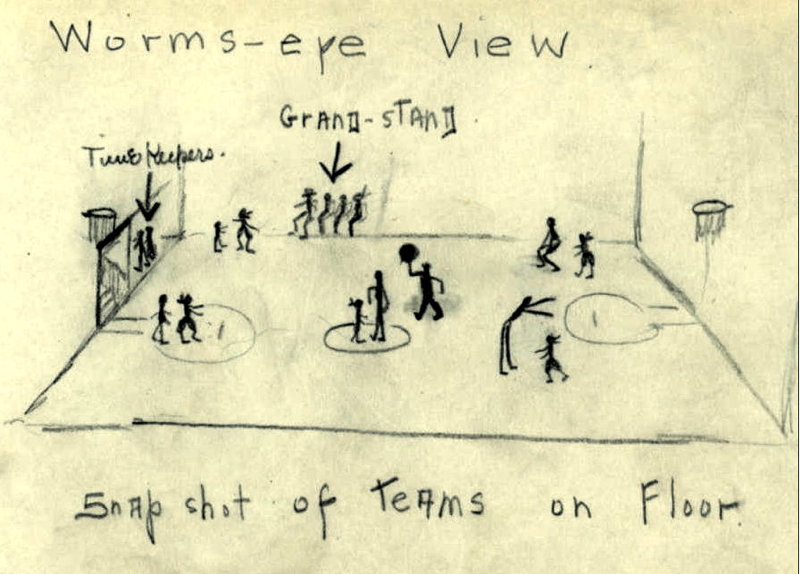 Worms-eye View
Grand-stand
Time Keepers.
Snap shot of Teams on Floor.